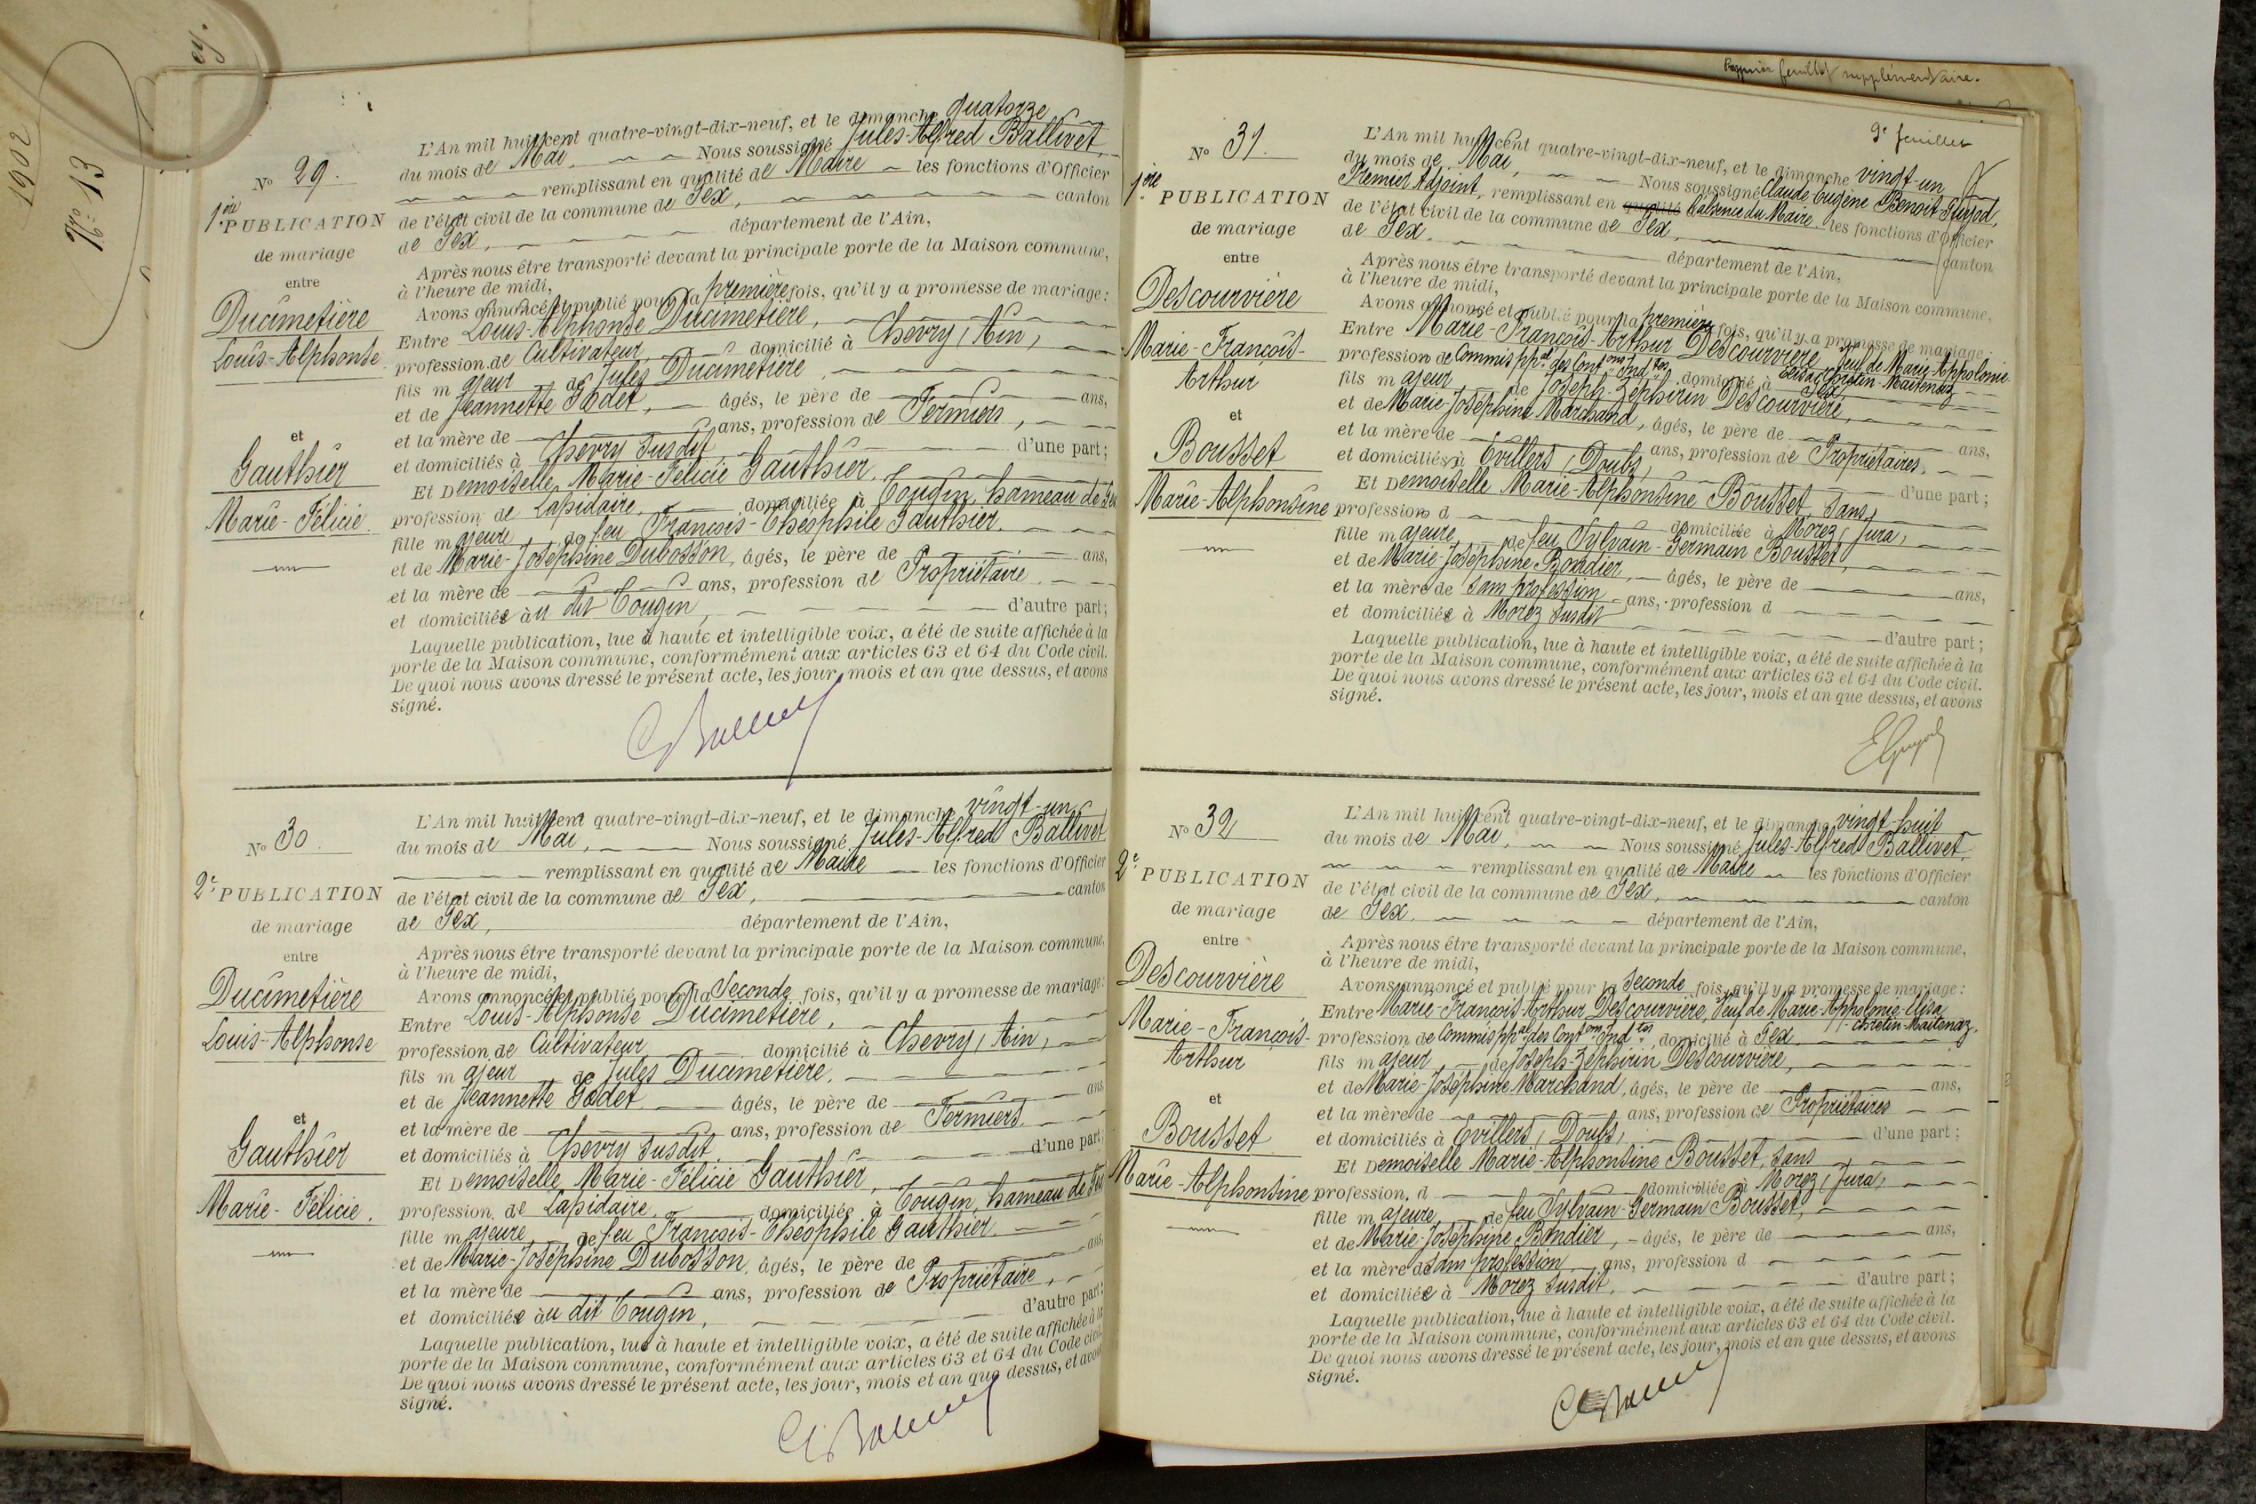 1902
No 13
ey.
No 29.
1ère PUBLICATION
de mariage
entre
Ducimetière
Louis-Alphonse
et
Gauthier
Marie-Félicie.
L'An mil huit cent quatre-vingt-dix-neuf, et le dimanche quatorze
du mois de Mai, Nous soussigné Jules-Alfred Ballivet,
remplissant en qualité de Maire les fonctions d'Officier
de l'état civil de la commune de Gex, canton
de Gex, département de l'Ain,
Après nous être transporté devant la principale porte de la Maison commune,
à l'heure de midi,
Avons annoncé et publié pour la première fois, qu'il y a promesse de mariage:
Entre Louis-Alphonse Ducimetière,
profession de Cultivateur, domicilié à Chevry (Ain)
fils majeur de Jules Ducimetière,
et de Jeannette Godet, âgés, le père de ans,
et la mère de ans, profession de Fermiers,
et domiciliés à Chevry susdit, d'une part;
Et Demoiselle Marie-Félicie Gauthier,
profession de Lapidaire, domiciliée à Tougin, hameau de Gex
fille majeure de feu François-Théophile Gauthier,
et de Marie-Joséphine Dubosson, âgés, le père de ans,
et la mère de ans, profession de Propriétaire,
et domiciliée au dit Tougin, d'autre part;
Laquelle publication, lue à haute et intelligible voix, a été de suite affichée à la
porte de la Maison commune, conformément aux articles 63 et 64 du Code civil.
De quoi nous avons dressé le présent acte, les jour, mois et an que dessus, et avons
signé.
No 30
2e PUBLICATION
de mariage
entre
Ducimetière
Louis-Alphonse
et
Gauthier
Marie-Félicie.
L'An mil huit cent quatre-vingt-dix-neuf, et le dimanche vingt-un
du mois de Mai, Nous soussigné Jules-Alfred Ballivet
remplissant en qualité de Maire les fonctions d'Officier
de l'état civil de la commune de Gex, canton
de Gex, département de l'Ain,
Après nous être transporté devant la principale porte de la Maison commune,
à l'heure de midi,
Avons annoncé et publié pour la Seconde fois, qu'il y a promesse de mariage:
Entre Louis-Alphonse Ducimetière,
profession de Cultivateur domicilié à Chevry (Ain)
fils majeur de Jules Ducimetière,
et de Jeannette Godet âgés, le père de ans
et la mère de ans, profession de Fermiers
et domiciliés à Chevry susdit, d'une part;
Et Demoiselle Marie-Félicie Gauthier,
profession de Lapidaire, domiciliée à Tougin, hameau de Gex
fille majeure de feu François-Théophile Gauthier
et de Marie-Joséphine Dubosson, âgés, le père de ans
et la mère de ans, profession de Propriétaire,
et domiciliée au dit Tougin, d'autre part;
Laquelle publication, lue à haute et intelligible voix, a été de suite affichée à la
porte de la Maison commune, conformément aux articles 63 et 64 du Code civil.
De quoi nous avons dressé le présent acte, les jour, mois et an que dessus, et avons
signé.
Premier feuillet supplémentaire.
9e feuillet
No 31.
1ère PUBLICATION
de mariage
entre
Descourvière
Marie-François-
Arthur
et
Bousset
Marie-Alphonsine
L'An mil huit cent quatre-vingt-dix-neuf, et le dimanche vingt-un
du mois de Mai, Nous soussigné Claude-Eugène Benoit Gurjod,
Premier Adjoint, remplissant en qualité l'absence du Maire les fonctions d'Officier
de l'état civil de la commune de Gex, canton
de Gex. département de l'Ain,
Après nous être transporté devant la principale porte de la Maison commune,
à l'heure de midi,
Avons annoncé et publié pour la première fois, qu'il y a promesse de mariage:
Entre Marie-François-Arthur Descourvière, Veuf de Marie-Appolonie-
Elisa Chrétin-Maitenaz
profession de Commis ppal des Contons Indtes, domicilié à Gex,
fils majeur, de Joseph-Zéphirin Descourvière,
et de Marie-Joséphine Marchand, âgés, le père de ans,
et la mère de ans, profession de Propriétaires,
et domiciliés à Evillers (Doubs) d'une part;
Et Demoiselle Marie-Alphonsine Bousset, sans
profession d domiciliée à Morez (Jura)
fille majeure, de feu Sylvain-Germain Bousset,
et de Marie-Joséphine Bondier, âgés, le père de ans,
et la mère de sans profession ans, profession d
et domiciliée à Morez susdit d'autre part;
Laquelle publication, lue à haute et intelligible voix, a été de suite affichée à la
porte de la Maison commune, conformément aux articles 63 et 64 du Code civil.
De quoi nous avons dressé le présent acte, les jour, mois et an que dessus, et avons
signé.
No 32
2e PUBLICATION
de mariage
entre
Descourvière
Marie-François-
Arthur
et
Bousset
Marie-Alphonsine
L'An mil huit cent quatre-vingt-dix-neuf, et le dimanche vingt-huit
du mois de Mai, Nous soussigné Jules-Alfred Ballivet,
remplissant en qualité de Maire les fonctions d'Officier
de l'état civil de la commune de Gex, canton
de Gex. département de l'Ain,
Après nous être transporté devant la principale porte de la Maison commune,
à l'heure de midi,
Avons annoncé et publié pour la Seconde fois, qu'il y a promesse de mariage:
Entre Marie-François-Arthur Descourvière, Veuf de Marie-Appolonie-Elisa
Chrétin-Maitenaz,
profession de Commis ppal des Contons Indtes, domicilié à Gex
fils majeur, de Joseph-Zéphirin Descourvière,
et de Marie-Joséphine Marchand, âgés, le père de ans,
et la mère de ans, profession de Propriétaires
et domiciliés à Evillers (Doubs) d'une part;
Et Demoiselle Marie-Alphonsine Bousset, sans
profession d domiciliée à Morez (Jura)
fille majeure, de feu Sylvain-Germain Bousset,
et de Marie-Joséphine Bondier, âgés, le père de ans,
et la mère de sans profession ans, profession d
et domiciliée à Morez susdit, d'autre part;
Laquelle publication, lue à haute et intelligible voix, a été de suite affichée à la
porte de la Maison commune, conformément aux articles 63 et 64 du Code civil.
De quoi nous avons dressé le présent acte, les jour, mois et an que dessus, et avons
signé.